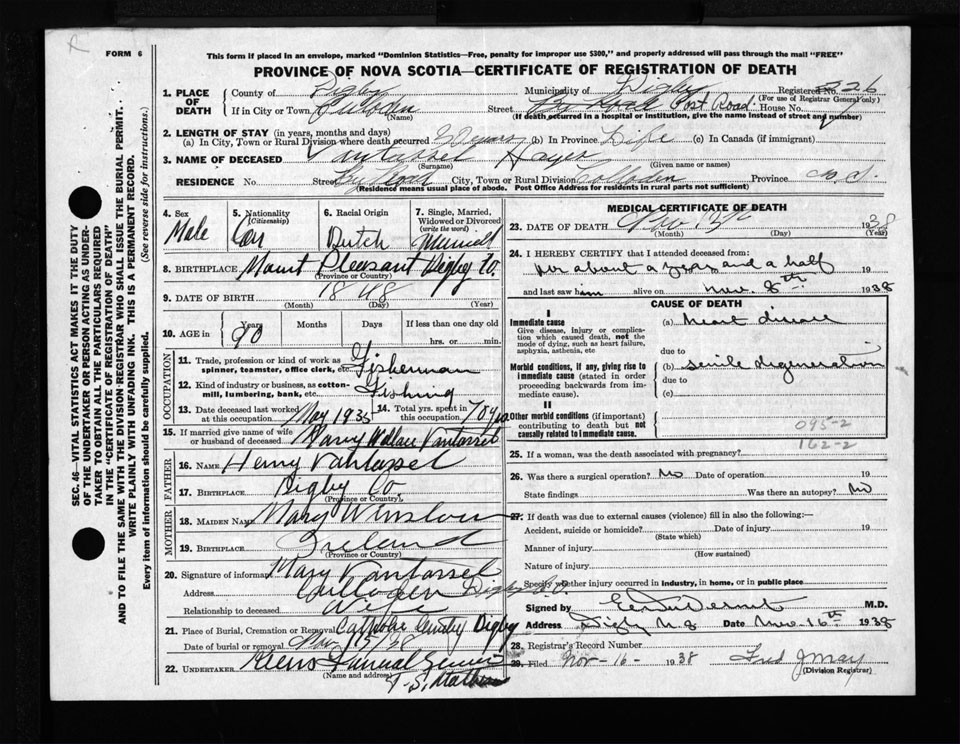 FORM 6
This form if placed in an envelope, marked "Dominion Statistics—Free, penalty for improper use $300," and properly addressed will pass through the mail "FREE"
PROVINCE OF NOVA SCOTIA—CERTIFICATE OF REGISTRATION OF DEATH
SEC. 46 - VITAL STATISTICS ACT MAKES IT THE DUTY OF THE UNDERTAKER OR PERSON ACTING AS UNDERTAKER TO OBTAIN ALL THE PARTICULARS REQUIRED IN THE "CERTIFICATE OF REGISTRATION OF DEATH" AND TO FILE THE SAME WITH THE DIVISION REGISTRAR WHO SHALL ISSUE THE BURIAL PERMIT.
WRITE PLAINLY WITH UNFADING INK. THIS IS A PERMANENT RECORD.
Every item of information should be carefully supplied. (See reverse side for instructions.)
1. PLACE OF DEATH
County of Digby Municipality of Digby Registered No. 226
(For use of Registrar General only)
If in City or Town Culloden Street Post Road House No.
(Name) (If death occurred in a hospital or institution, give the name instead of street and number)
2. LENGTH OF STAY (in years, months and days)
(a) In City, Town or Rural Division where death occurred (b) In Province Life (c) In Canada (if immigrant)
3. NAME OF DECEASED Vantassel
(Surname) (Given name or names)
RESIDENCE No. Street City, Town or Rural Division Colloden Province N.S.
(Residence means usual place of abode. Post Office Address for residents in rural parts not sufficient)
4. Sex Male
5. Nationality (Citizenship) Can
6. Racial Origin Dutch
7. Single, Married, Widowed or Divorced (write the word) Married
8. BIRTHPLACE Mount Pleasant Digby Co.
(Province or Country)
9. DATE OF BIRTH 1848
(Month) (Day) (Year)
10. AGE in Years 90 Months Days If less than one day old
hrs. or min.
OCCUPATION
11. Trade, profession or kind of work as spinner, teamster, office clerk, etc. Fisherman
12. Kind of industry or business, as cotton-mill, lumbering, bank, etc. Fishing
13. Date deceased last worked at this occupation May 1935 14. Total yrs. spent in this occupation 70 yrs
15. If married give name of wife or husband of deceased Mary Wallace Vantassel
FATHER
16. NAME Henry Vantassel
17. BIRTHPLACE Digby Co
(Province or Country)
MOTHER
18. MAIDEN NAME Mary Winslow
19. BIRTHPLACE Ireland
(Province or Country)
20. Signature of informant Mary Vantassel
Address Culloden Digby Co.
Relationship to deceased Wife
21. Place of Burial, Cremation or Removal Digby
Date of burial or removal
22. UNDERTAKER Funeral Service
(Name and address)
MEDICAL CERTIFICATE OF DEATH
23. DATE OF DEATH Nov 1938
(Month) (Day) (Year)
24. I HEREBY CERTIFY that I attended deceased from:
for about a year and a half 19
and last saw him alive on Nov. 8th 1938
CAUSE OF DEATH
I
Immediate cause (a) heart disease
Give disease, injury or complication which caused death, not the mode of dying, such as heart failure, asphyxia, asthenia, etc
due to
Morbid conditions, if any, giving rise to immediate cause (stated in order proceeding backwards from immediate cause)
(b) senile degeneration
due to
(c)
II
Other morbid conditions (if important) contributing to death but not causally related to immediate cause.
095-2
162-2
25. If a woman, was the death associated with pregnancy?
26. Was there a surgical operation? No Date of operation 19
State findings Was there an autopsy? No
27. If death was due to external causes (violence) fill in also the following:—
Accident, suicide or homicide? Date of injury 19
(State which)
Manner of injury
(How sustained)
Nature of injury
Specify whether injury occurred in industry, in home, or in public place
Signed by M.D.
Address Digby N.S Date Nov. 16th 1938
28. Registrar's Record Number
29. Filed Nov-16- 1938 Fred J May
(Division Registrar)